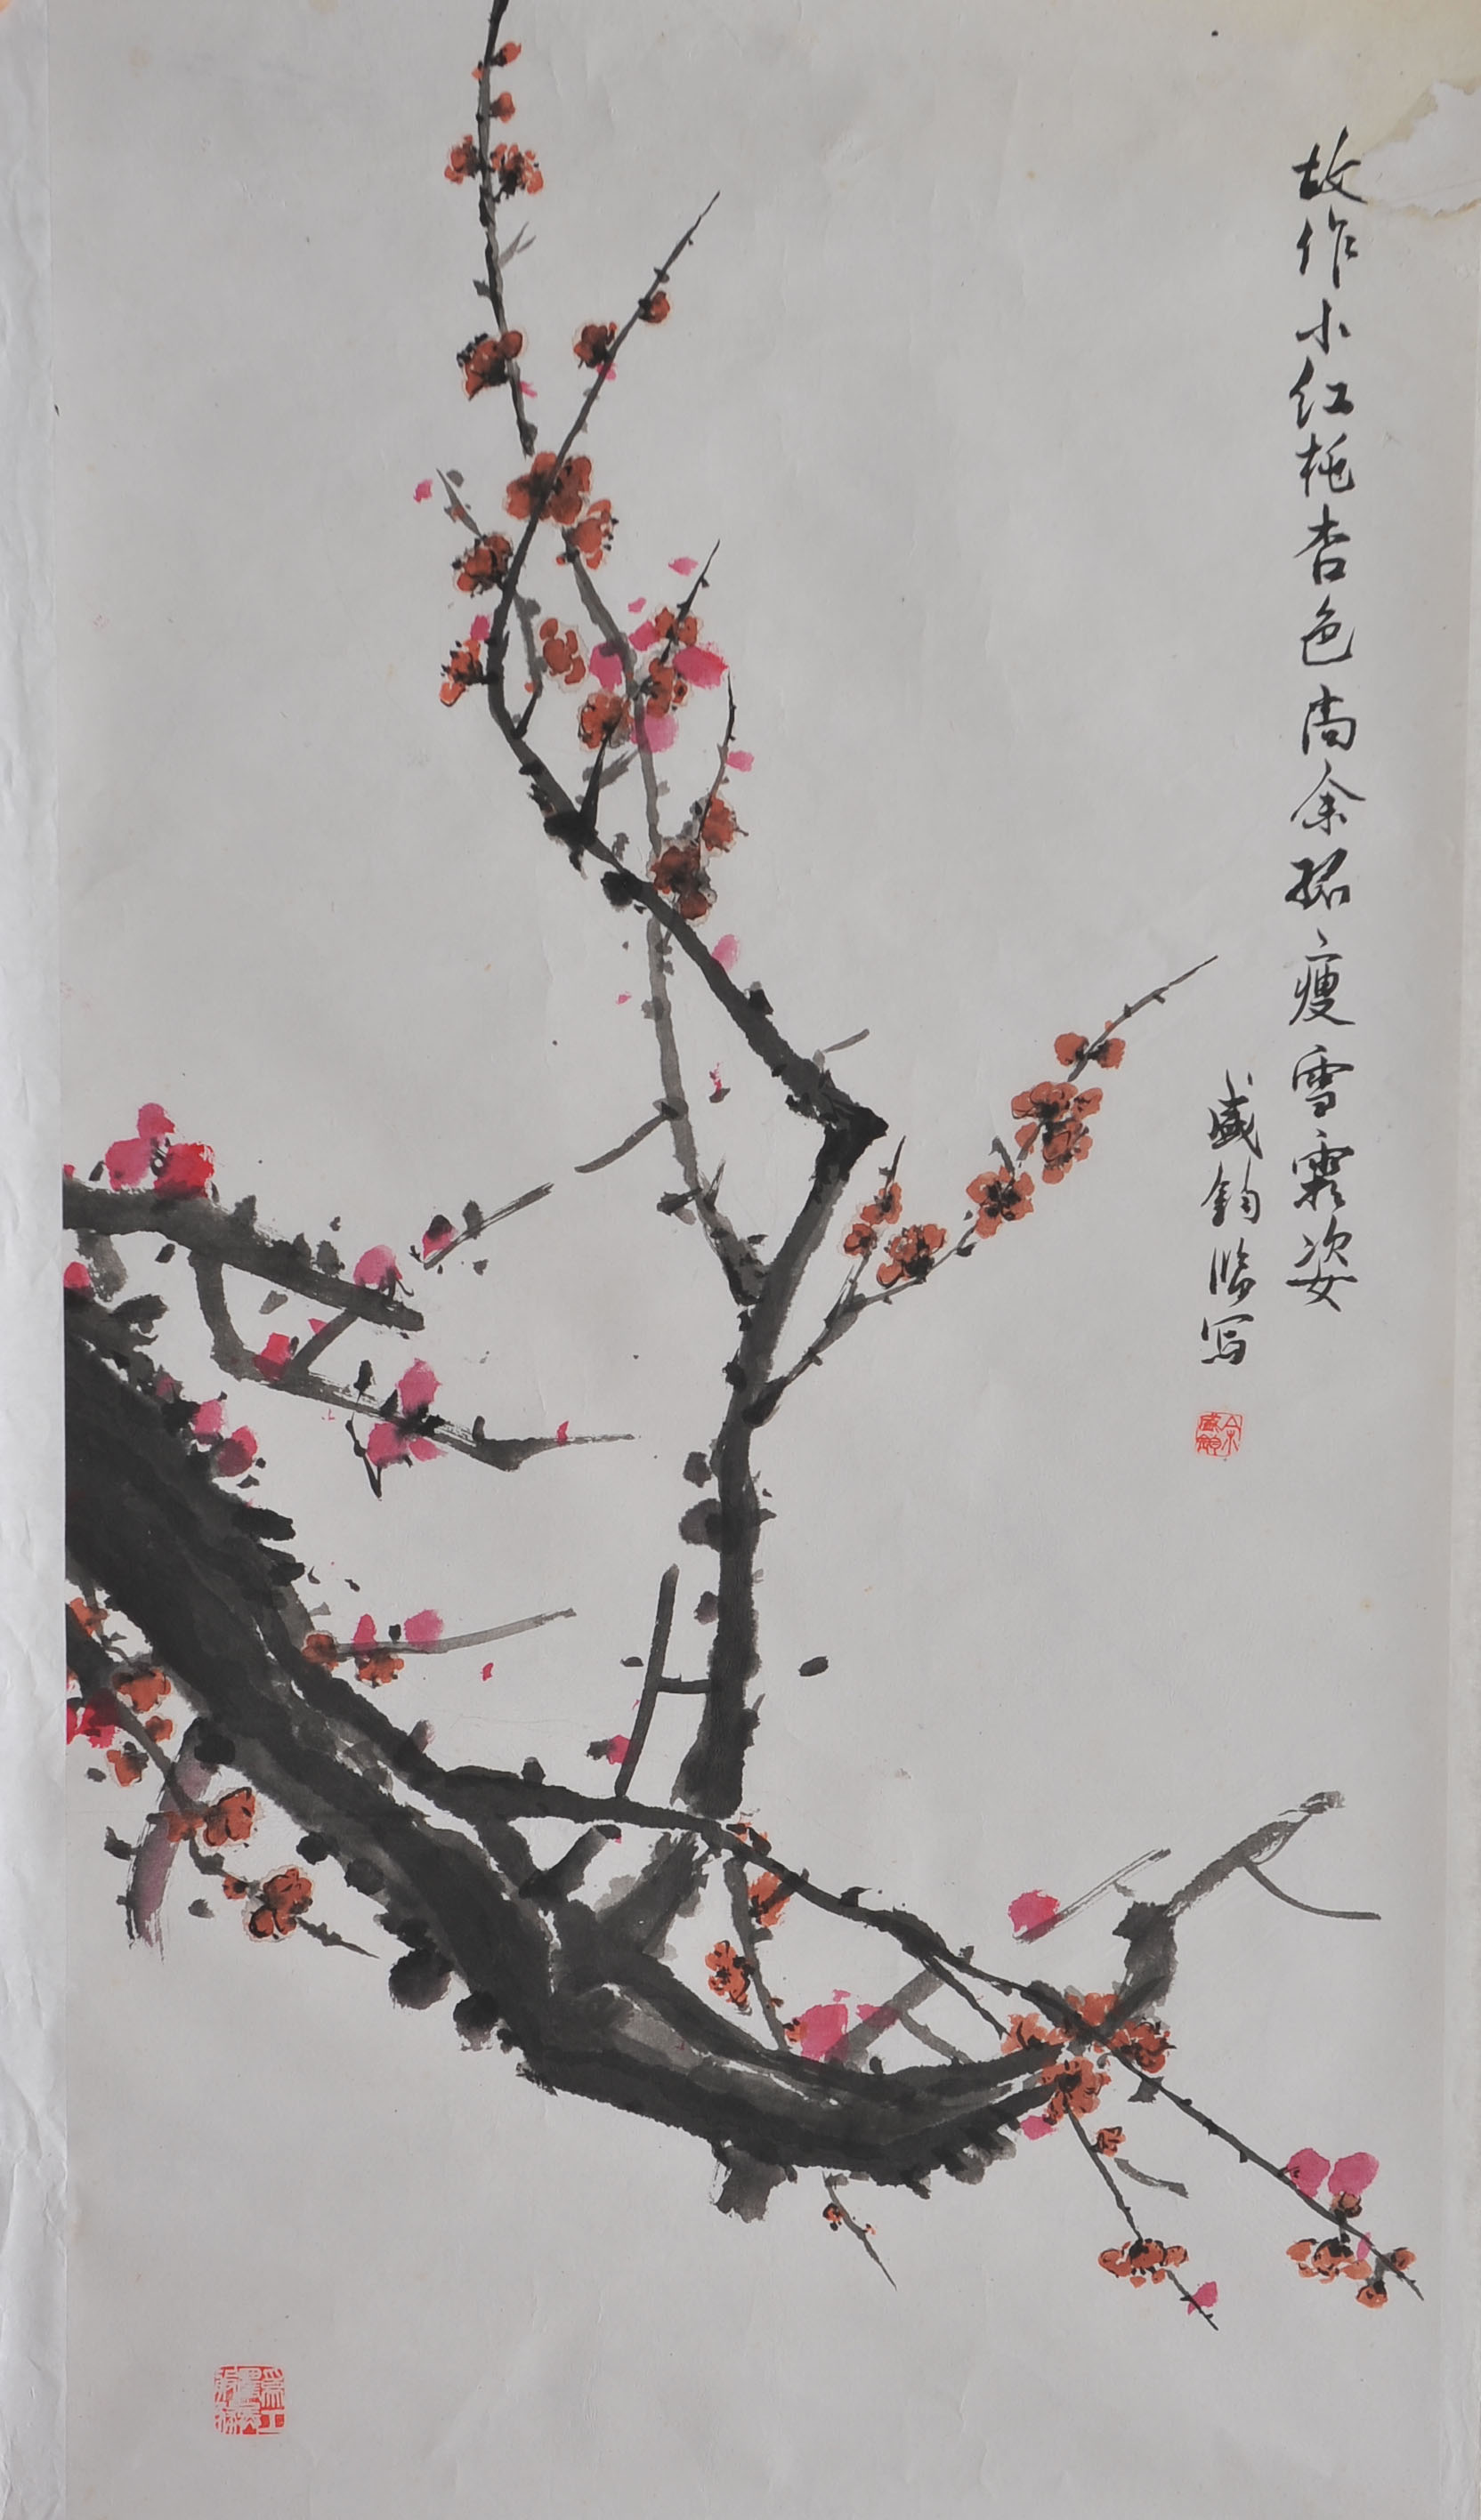 故作小红桃杏色尚余孤瘦雪霜姿
盛鈞临写
余盛鈞